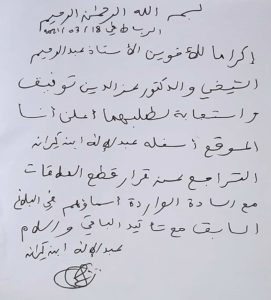 بسم الله الرحمان الرحيم
الرباط في 18/03/2021
إكراما للأخوين الأستاذ عبد الرحيم
الشيخي والدكتور عز الدين توفيق
واستجابة لطلبهما أعلن أنا
الموقع أسفله عبد الإلاه ابن كيران
التراجع عن قرار قطع العلاقات
مع السادة الواردة أسماؤهم في البلاغ
السابق مع تأكيد الباقي والسلام
عبد الإلاه ابن كيران